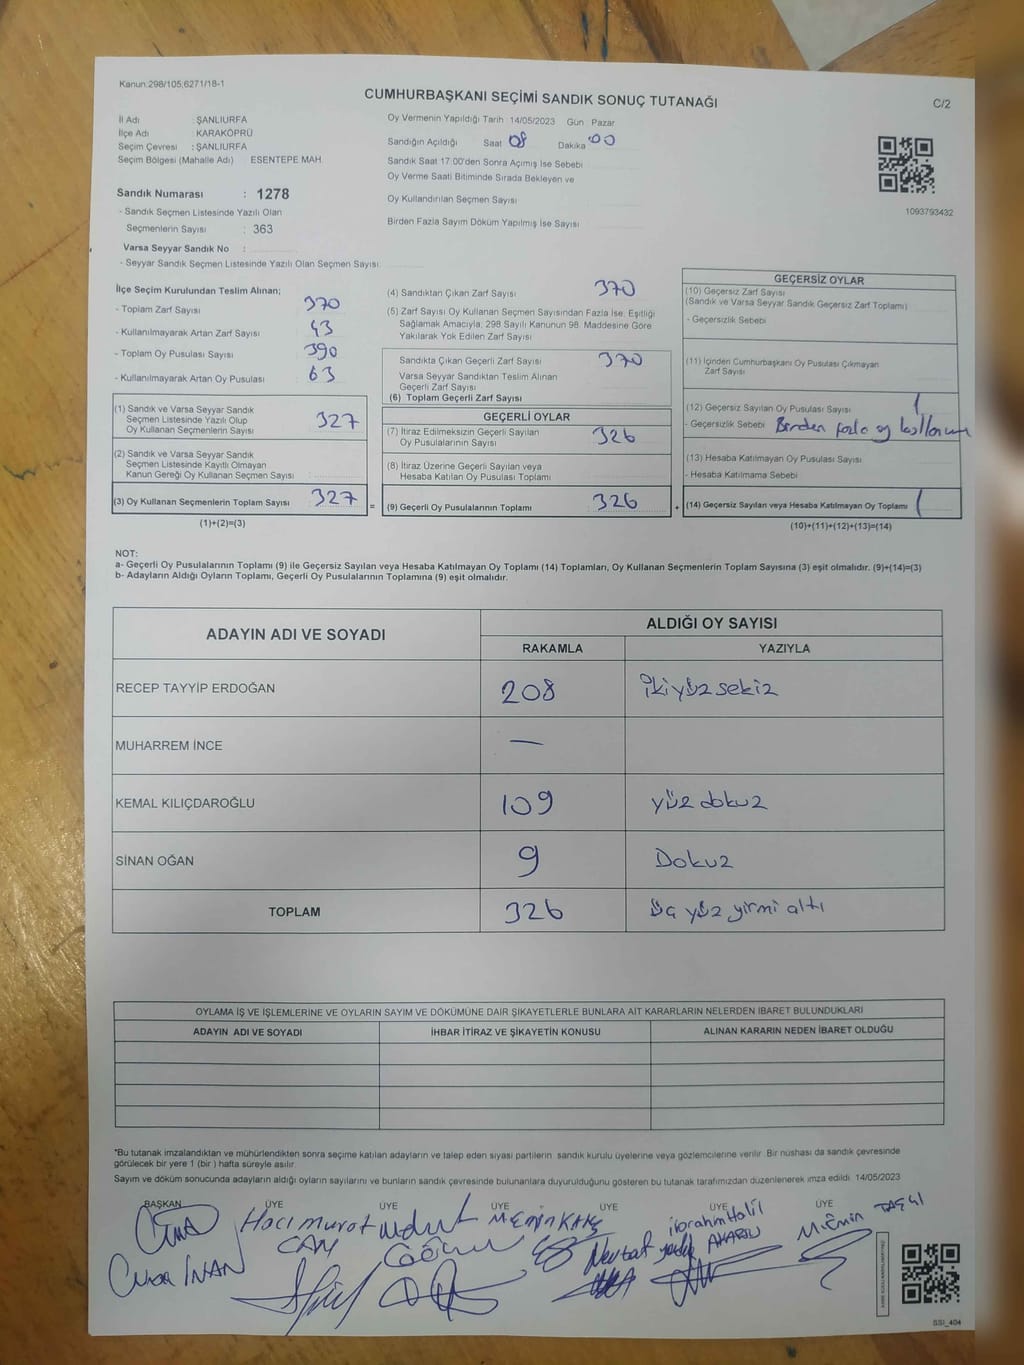 Kanun:298/105;6271/18-1
CUMHURBAŞKANI SEÇİMİ SANDIK SONUÇ TUTANAĞI
C/2
İl Adı : ŞANLIURFA
İlçe Adı : KARAKÖPRÜ
Seçim Çevresi : ŞANLIURFA
Seçim Bölgesi (Mahalle Adı) ESENTEPE MAH.
Sandık Numarası : 1278
- Sandık Seçmen Listesinde Yazılı Olan
Seçmenlerin Sayısı : 363
Varsa Seyyar Sandık No :
- Seyyar Sandık Seçmen Listesinde Yazılı Olan Seçmen Sayısı:
Oy Vermenin Yapıldığı Tarih :14/05/2023 Gün Pazar
Sandığın Açıldığı Saat 08 Dakika 00
Sandık Saat 17:00'den Sonra Açılmış İse Sebebi
Oy Verme Saati Bitiminde Sırada Bekleyen ve
Oy Kullandırılan Seçmen Sayısı
Birden Fazla Sayım Döküm Yapılmış İse Sayısı
1093793432
İlçe Seçim Kurulundan Teslim Alınan;
- Toplam Zarf Sayısı 370
- Kullanılmayarak Artan Zarf Sayısı 43
- Toplam Oy Pusulası Sayısı 390
- Kullanılmayarak Artan Oy Pusulası 63
(1) Sandık ve Varsa Seyyar Sandık
Seçmen Listesinde Yazılı Olup
Oy Kullanan Seçmenlerin Sayısı 327
(2) Sandık ve Varsa Seyyar Sandık
Seçmen Listesinde Kayıtlı Olmayan
Kanun Gereği Oy Kullanan Seçmen Sayısı :
(3) Oy Kullanan Seçmenlerin Toplam Sayısı 327
(1)+(2)=(3)
=
(4) Sandıktan Çıkan Zarf Sayısı 370
(5) Zarf Sayısı Oy Kullanan Seçmen Sayısından Fazla İse, Eşitliği
Sağlamak Amacıyla, 298 Sayılı Kanunun 98. Maddesine Göre
Yakılarak Yok Edilen Zarf Sayısı
Sandıkta Çıkan Geçerli Zarf Sayısı 370
Varsa Seyyar Sandıktan Teslim Alınan
Geçerli Zarf Sayısı
(6) Toplam Geçerli Zarf Sayısı
GEÇERLİ OYLAR
(7) İtiraz Edilmeksizin Geçerli Sayılan
Oy Pusulalarının Sayısı 326
(8) İtiraz Üzerine Geçerli Sayılan veya
Hesaba Katılan Oy Pusulası Toplamı
(9) Geçerli Oy Pusulalarının Toplamı 326
+
GEÇERSİZ OYLAR
(10) Geçersiz Zarf Sayısı
(Sandık ve Varsa Seyyar Sandık Geçersiz Zarf Toplamı)
- Geçersizlik Sebebi
(11) İçinden Cumhurbaşkanı Oy Pusulası Çıkmayan
Zarf Sayısı
(12) Geçersiz Sayılan Oy Pusulası Sayısı 1
- Geçersizlik Sebebi Birden fazla oy kullanım
(13) Hesaba Katılmayan Oy Pusulası Sayısı
- Hesaba Katılmama Sebebi
(14) Geçersiz Sayılan veya Hesaba Katılmayan Oy Toplamı 1
(10)+(11)+(12)+(13)=(14)
NOT:
a- Geçerli Oy Pusulalarının Toplamı (9) ile Geçersiz Sayılan veya Hesaba Katılmayan Oy Toplamı (14) Toplamları, Oy Kullanan Seçmenlerin Toplam Sayısına (3) eşit olmalıdır. (9)+(14)=(3)
b- Adayların Aldığı Oyların Toplamı, Geçerli Oy Pusulalarının Toplamına (9) eşit olmalıdır.
ADAYIN ADI VE SOYADI
ALDIĞI OY SAYISI
RAKAMLA YAZIYLA
RECEP TAYYİP ERDOĞAN 208 ikiyüz sekiz
MUHARREM İNCE —
KEMAL KILIÇDAROĞLU 109 yüz dokuz
SİNAN OĞAN 9 Dokuz
TOPLAM 326 üç yüz yirmi altı
OYLAMA İŞ VE İŞLEMLERİNE VE OYLARIN SAYIM VE DÖKÜMÜNE DAİR ŞİKAYETLERLE BUNLARA AİT KARARLARIN NELERDEN İBARET BULUNDUKLARI
ADAYIN ADI VE SOYADI İHBAR İTİRAZ VE ŞİKAYETİN KONUSU ALINAN KARARIN NEDEN İBARET OLDUĞU
*Bu tutanak imzalandıktan ve mühürlendikten sonra seçime katılan adayların ve talep eden siyasi partilerin sandık kurulu üyelerine veya gözlemcilerine verilir. Bir nüshası da sandık çevresinde
görülecek bir yere 1 (bir ) hafta süreyle asılır.
Sayım ve döküm sonucunda adayların aldığı oyların sayılarını ve bunların sandık çevresinde bulunanlara duyurulduğunu gösteren bu tutanak tarafımızdan düzenlenerek imza edildi. 14/05/2023
BAŞKAN ÜYE ÜYE ÜYE ÜYE ÜYE
Cuma İNAN
Hacı murat CAN
ibrahim Halil AKARSU
Mümin TAŞÇI
SSI_404